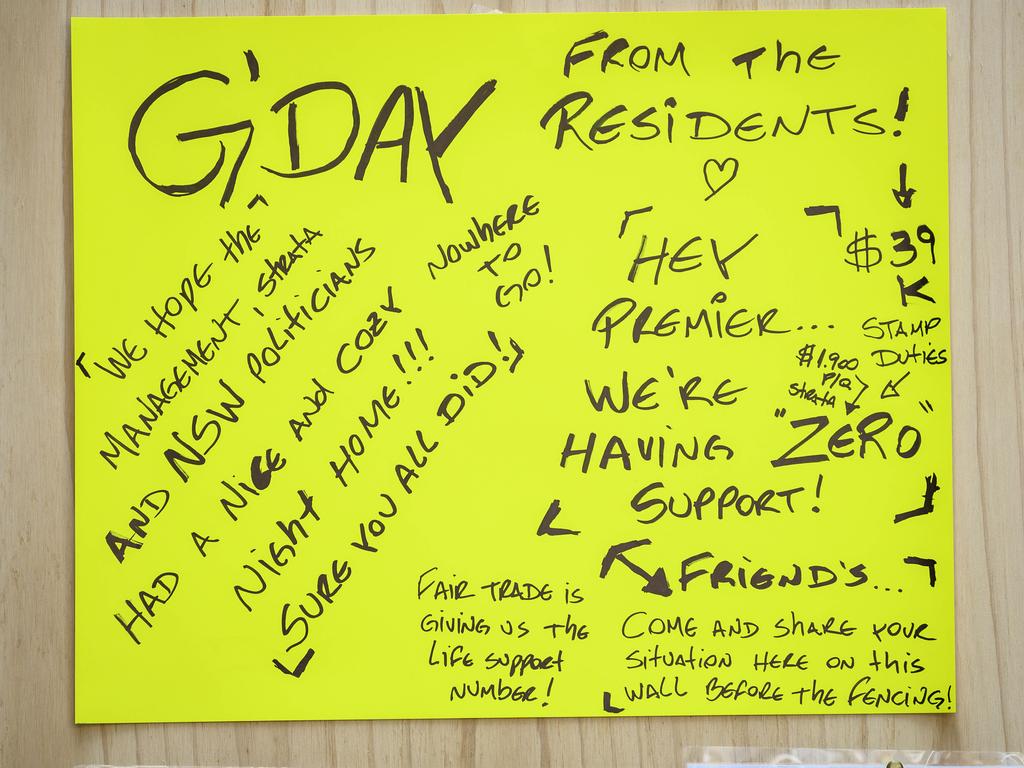 G'DAY
FROM The
RESiDENTS!
"WE HOPE the"
MANAGEMENT, StRAtA
AND NSW POLitiCiANS
HAD A NiCE AND COZY
NiGht HOME!!!
SURE YOU ALL DiD!
NOWhERE
TO
GO!
HEY
PREMiER...
WE'RE
HAViNG "ZERO"
SUPPORT!
$39
K
STAMP
DUTiES
$1.900
P/Q
StRAtA
FAiR TRADE iS
GiViNG US ThE
LiFE SUPPORT
NUMBER!
FRiEND'S...
COME AND ShARE YOUR
SitUAtiON HERE ON thiS
WALL BEFORE thE FENCiNG!